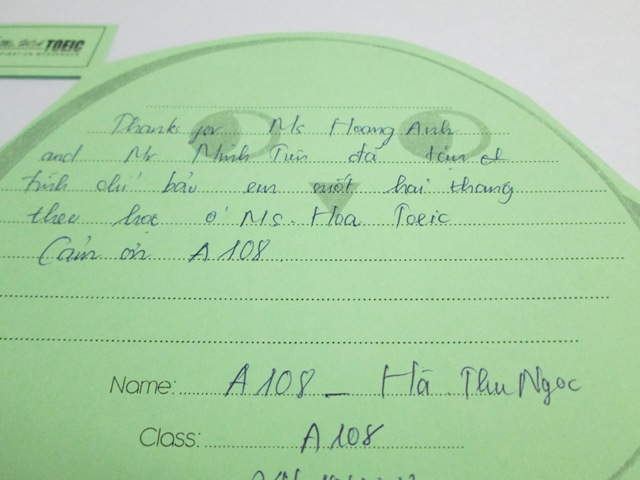 TOEIC
Thanks for Ms Hoang Anh
and Mr Minh Tiến đã tận
tình chỉ bảo em suốt hai tháng
theo học ở Ms. Hoa Toeic
Cảm ơn A108
Name: A108 - Hà Thu Ngọc
Class: A108